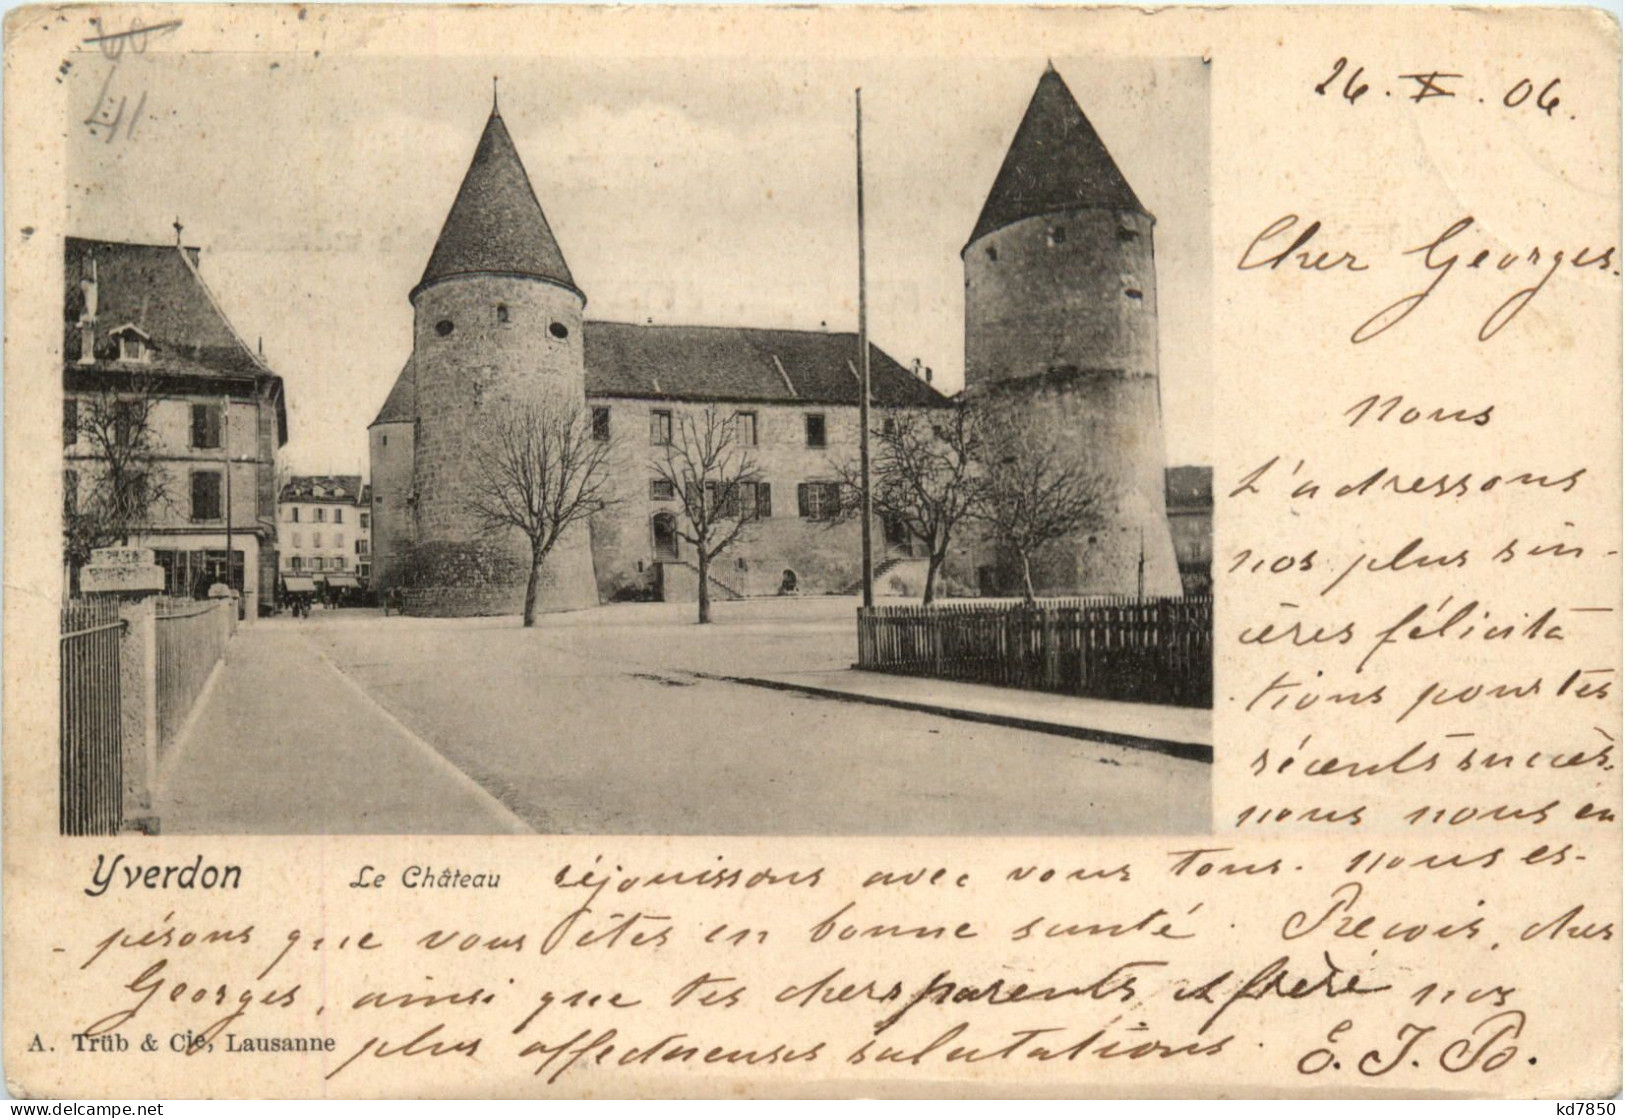 60
41
26. X. 06.
Cher Georges.
Nous
t'adressons
nos plus sin-
cères félicita
tions pour tes
récents succès.
nous nous en
Yverdon Le Château réjouissons avec vous tous. nous es-
- pérons que vous êtes en bonne santé. Reçois, cher
Georges, ainsi que tes chers parents et frère nos
plus affectueuses salutations. E. J. Po.
A. Trüb & Cie, Lausanne
kd7850